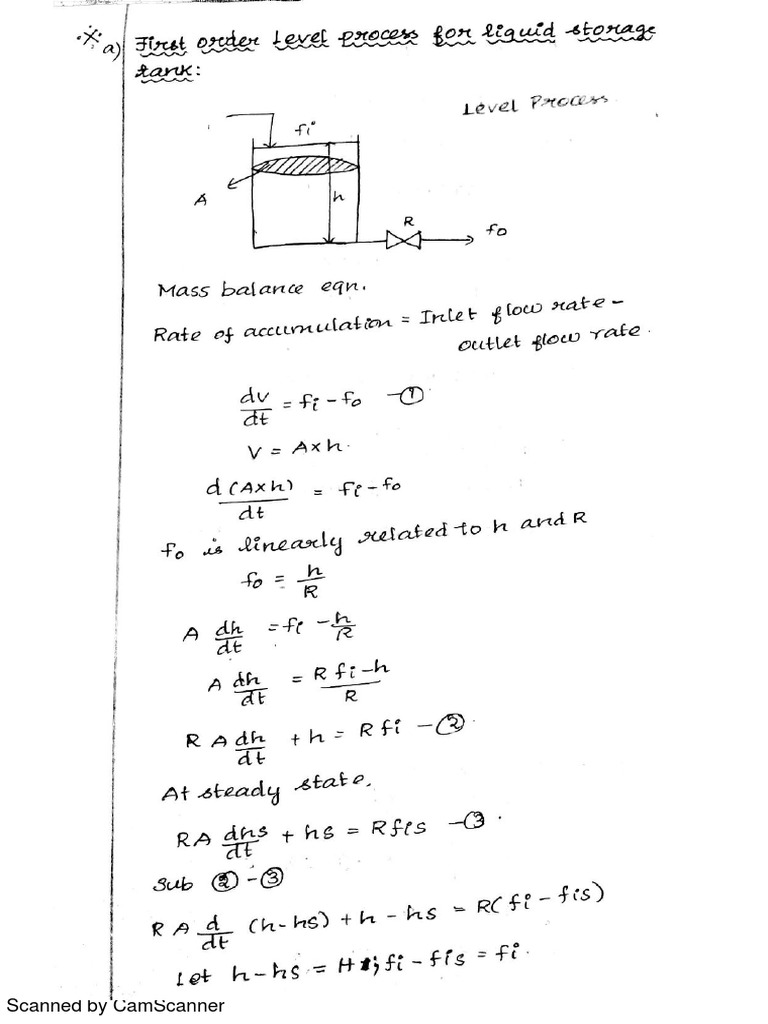 ※ a) First order Level process for liquid storage
tank:
Level Process
fi
A
h
R
fo
Mass balance eqn.
Rate of accumulation = Inlet flow rate -
outlet flow rate.
dv/dt = fi - fo - ①
V = A x h.
d(Axh)/dt = fi - fo
fo is linearly related to h and R
fo = h/R
A dh/dt = fi - h/R
A dh/dt = R fi - h/R
R A dh/dt + h = R fi - ②.
At steady state,
RA dhs/dt + hs = R fis - ③.
Sub ② - ③
R A d/dt (h - hs) + h - hs = R( fi - fis)
Let h - hs = H ; fi - fis = fi.
Scanned by CamScanner